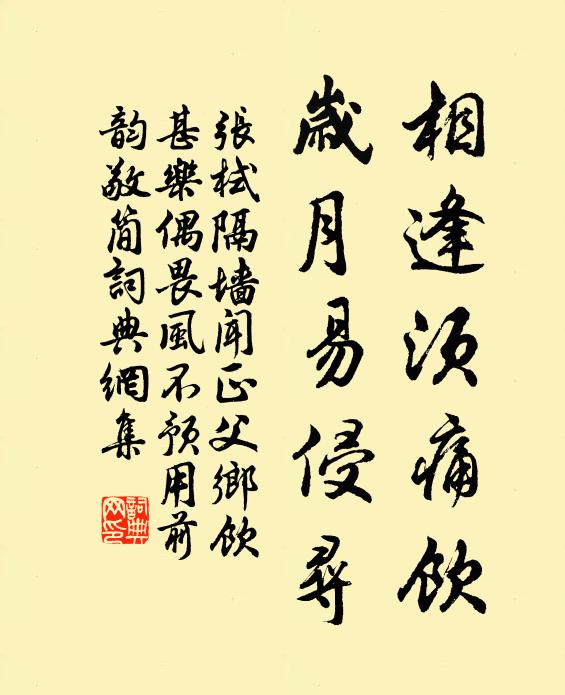 相逢须痛飲
歲月易侵尋
張栻隔墻闻正父鄉飲
甚樂偶畏風不預用前
韵敬简詞典網集
詞典網印